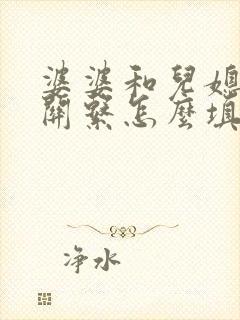 婆婆和兒媳
關繫怎麼填
净水